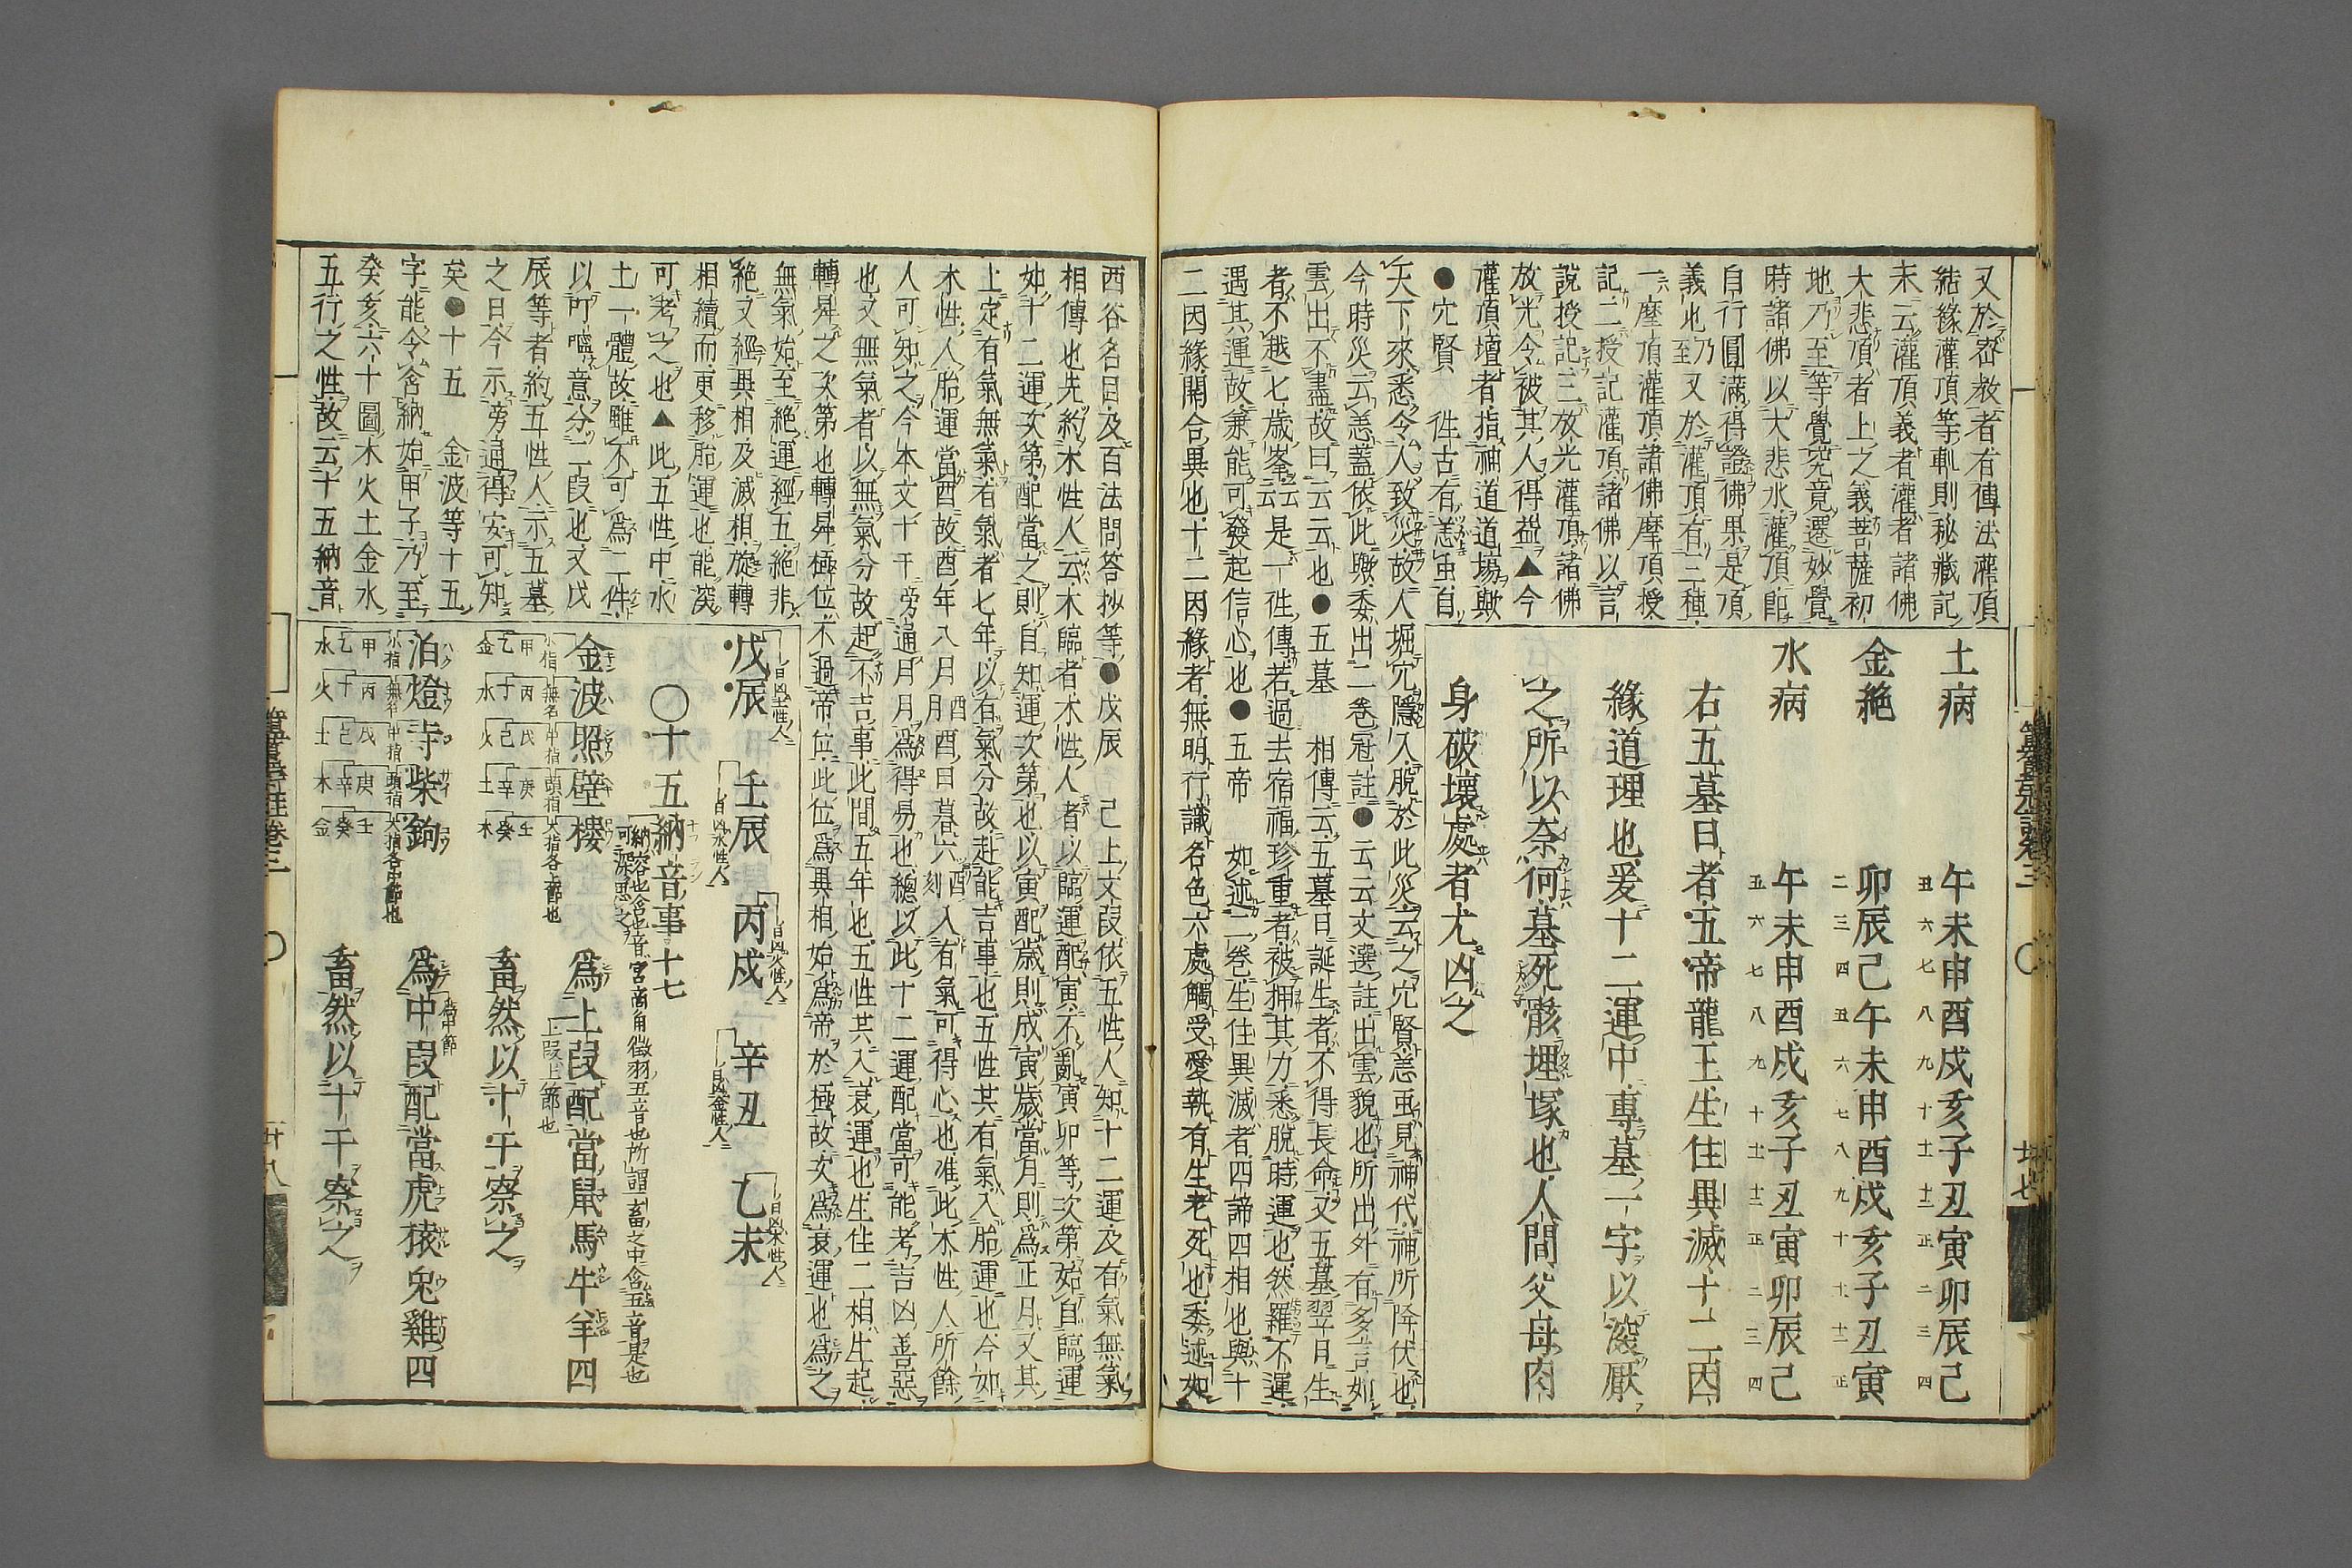 又於密教者有傳法灌頂
結緣灌頂等軌則秘藏記
末云灌頂義者灌者諸佛
大悲頂者上之義菩薩初
地乃至等覺究竟遷妙覺
時諸佛以大悲水灌頂即
自行圓滿得證佛果是頂
義也乃至又於灌頂有三種
一摩頂灌頂諸佛摩頂授
記二授記灌頂諸佛以言
說授記三放光灌頂諸佛
放光令被其人得益▲今
灌頂壇者指神道道場歟
●穴賢 往古有恙虫自
土病 午未申酉戌亥子丑寅卯辰巳
五六七八九十十一十二正二三四
金絶 卯辰巳午未申酉戌亥子丑寅
二三四五六七八九十十一十二正
水病 午未申酉戌亥子丑寅卯辰巳
五六七八九十十一十二正二三四
右五墓日者五帝龍王生住異滅十二因
緣道理也爰十二運中專墓一字以深厭
之所以奈何墓死骸埋塚也人間父母肉
身破壞處者尤凶之
天下來悉令人致災故人堀穴隱入脫於此災云之穴賢恙虫見神代神所降伏也
今時災云恙蓋依此歟委出二卷冠註●云云文選註出雲貌也所出外有多言如
雲出不盡故曰云云也●五墓 相傳云五墓日誕生者不得長命文五墓翌日生
者不越七歲峯云云是一徃傳若過去宿福珍重者被拥其力悉脫時運也然羅不運
遇其運故兼能可發起信心也●五帝 如述二卷生住異滅者四諦四相也與十
二因緣開合異也十二因緣者無明行識名色六處觸受愛執有生老死也委述如
西谷名目及百法問答抄等●戊辰 己上文段依五性人知十二運及有氣無氣
相傳也先約木性人云木臨者木性人者以臨運配寅不亂寅卯等次第始自臨運
如十二運次第配當之則自知運次第也以寅配歲則成寅歲當月則為正月又其
上定有氣無氣有氣者七年以有氣分故赴能吉事也五性其有氣入胎運也今如
木性人胎運當酉故酉年八月酉月酉日暮六酉刻入有氣可得心也准此木性人所餘
人可知之今本文十干旁通月月為得易也總以此十二運配當可能考吉凶善惡
也又無氣者以無氣分故起不吉事此間五年也五性其入衰運也生住二相生起
轉昇之次第也轉昇極位不過帝位此位為異相始為帝於極故次為衰運也為之
無氣始至絶運經五絶非
絶又經異相及滅相旋轉
相續而更移胎運也能深
可考之也▲此五性中水
土一體故雖不可為二件
以呵嘔意分二段也又戊
辰等者約五性人示五墓
之日今示旁通得安可知
矣●十五 金波等十五
字能令含納始甲子乃至
癸亥六十圖木火土金水
五行之性故云十五納音
戊辰 壬辰 丙戌 辛丑 乙未
日凶土性人 日凶水性人 日凶火性人 日凶金性人 日凶木性人
○十五納音事十七
納容也含也音宮商角徵羽五音也所謂一畜之中含五音是也
可深思之
金波照壁樓 為上段配當鼠馬牛羊四
上段上節也
小指 無名 中指 頭指 大指各上節也
甲 丙 戊 庚 壬
乙 丁 己 辛 癸
金 水 火 土 木
畜然以十干察之
泊燈寺柴鉤 為中段配當虎猿兔雞四
為中節
小指 無名 中指 頭指 大指各中節也
甲 丙 戊 庚 壬
乙 丁 己 辛 癸
水 火 土 木 金
畜然以十干察之